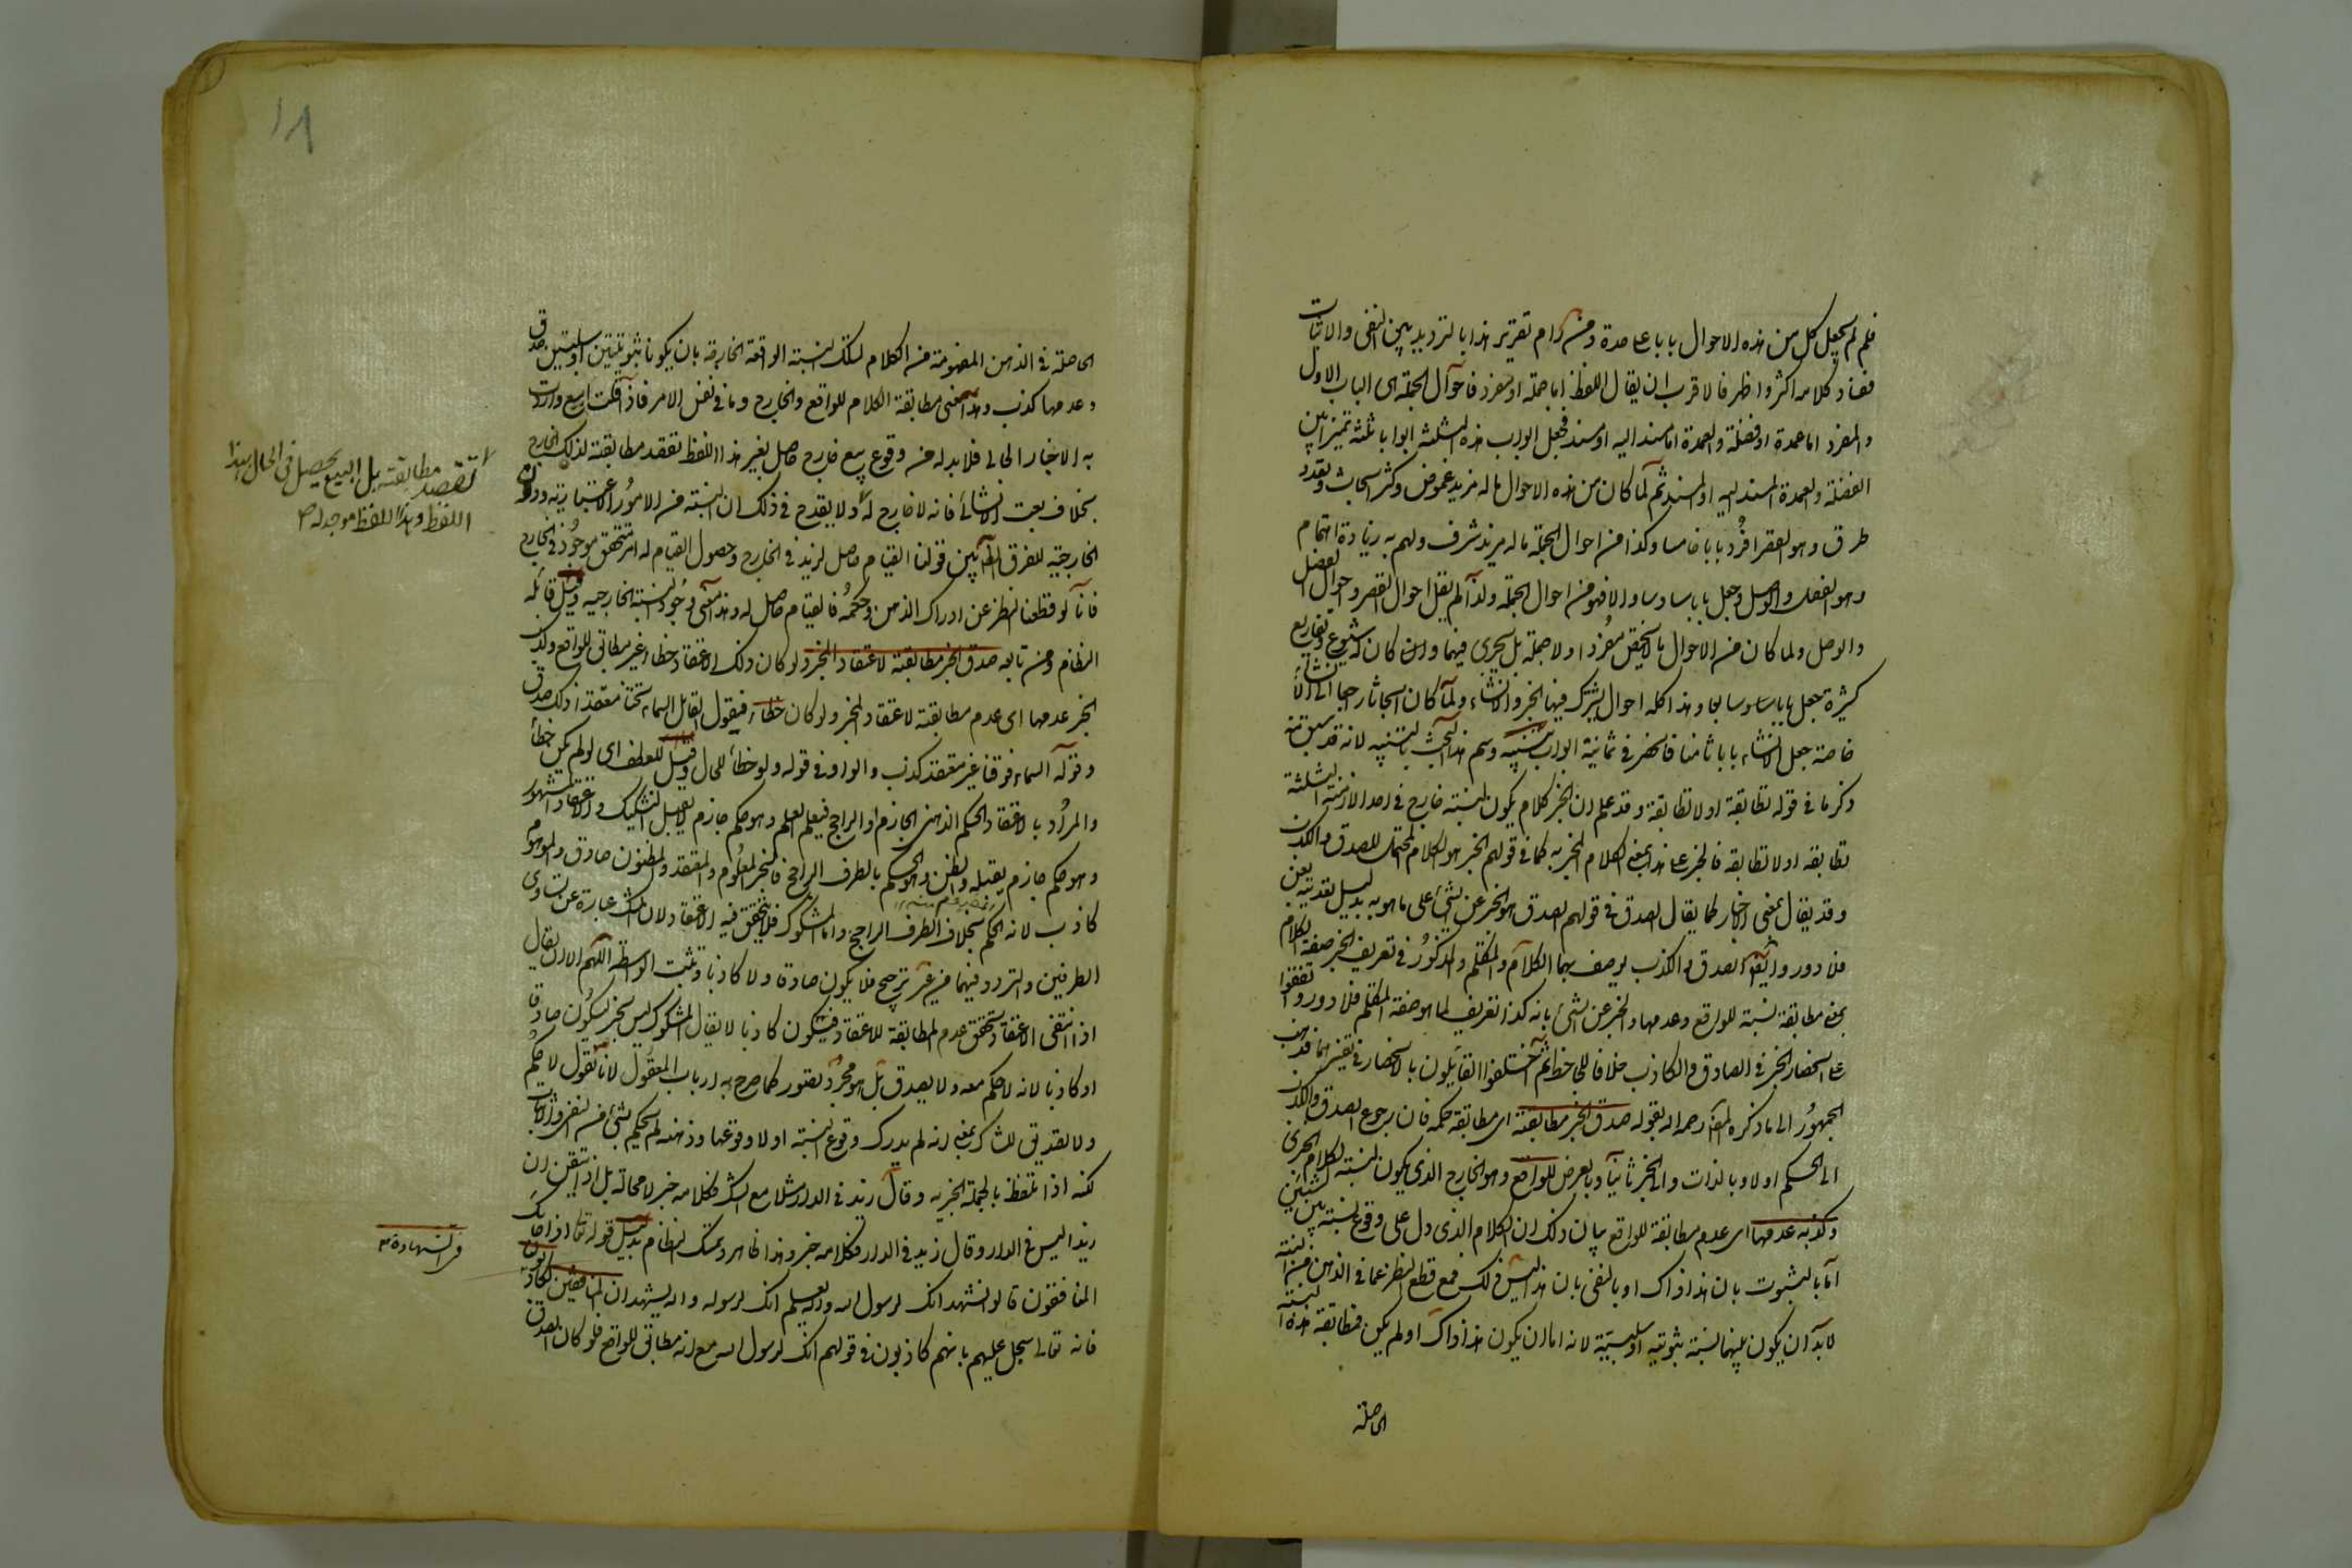 فلم لم يجعل كل من هذه الاحوال بابا علىحدة ومن رام تقرير هذا بالترديد بين النفى والاثبات
ففساد كلامه اكثر واظهر فالاقرب ان يقال اللفظ اما جملة او مفرد فاحوال الجملة هى الباب الاول
والمفرد اما عمدة او فضلة والعمدة اما مسند اليه او مسند فجعل ابواب هذه الثلثة ابوابا ثلثة تميزا بين
الفضلة والعمدة المسند اليه او المسند ثم لما كان من هذه الاحوال ما له مزيد غموض وكثرة ابحاث وتعدد
طرق وهو القصر افرد بابا خامسا وكذا من احوال الجملة ما له مزيد شرف ولهم به زيادة اهتمام
وهو الفصل والوصل فجعل بابا سادسا والا فهو من احوال الجملة ولذا لم يقل احوال القصر واحوال الفصل
والوصل ولما كان من الاحوال ما لا يختص مفردا ولا جملة بل يجرى فيهما وان كان له شيوع وتفاريع
كثيرة جعل بابا سابعا وهذا كله احوال يشترك فيها الخبر والانشاء ولما كان ابحاث راجعة الى الانشاء
خاصة جعل الانشاء بابا ثامنا فانحصر فى ثمانية ابواب تنبيه وسم هذا البحث بالتنبيه لانه قد سبق منه
ذكر ما فى قوله تطابقه او لا تطابقه وقد علم ان الخبر كلام يكون لنسبته خارج فى احد الازمنة الثلثة
تطابقه او لا تطابقه فالخبر على هذا بمعنى الكلام المخبر به كما فى قولهم الخبر هو الكلام المحتمل للصدق والكذب
وقد يقال بمعنى الاخبار كما يقال الصدق فى قولهم الصدق هو الخبر عن الشئ على ما هو به بدليل تعديته بعن
فلا دور وايضا الصدق والكذب يوصف بهما الكلام والمتكلم والمذكور فى تعريف الخبر صفة الكلام
بمعنى مطابقة نسبته للواقع وعدمها والخبر عن الشئ بانه كذا تعريف لما هو صفة المتكلم فلا دور واتفقوا
على انحصار الخبر فى الصادق والكاذب خلافا للجاحظ ثم اختلفوا القائلون بالانحصار فى تفسيرهما فذهب
الجمهور الى ما ذكره المص رحمه الله بقوله صدق الخبر مطابقته اى مطابقة حكمه فان رجوع الصدق والكذب
الى الحكم اولا وبالذات والى الخبر ثانيا وبالعرض للواقع وهو الخارج الذى يكون لنسبة الكلام الخبرى
وكذبه عدمها اى عدم مطابقته للواقع بيان ذلك ان الكلام الذى دل على وقوع نسبة بين شيئين
اما بالثبوت بان هذا ذاك او بالنفى بان هذا ليس ذلك فمع قطع النظر عما فى الذهن من النسبة
لا بد ان يكون بينهما نسبة ثبوتية او سلبية لانه اما ان يكون هذا ذاك او لم يكن فمطابقة هذه النسبة
الحاصلة
١٨
الحاصلة فى الذهن المفهومة من الكلام لتلك النسبة الواقعة الخارجة بان يكونا ثبوتيتين او سلبيتين صدق
وعدمها كذب وهذا معنى مطابقة الكلام للواقع والخارج وما فى نفس الامر فاذا قلت ابيع واردت
به الاخبار الحالى فلا بد له من وقوع بيع خارج حاصل بغير هذا اللفظ تقصد مطابقته لذلك الخارج
بخلاف بعت الانشائى فانه لا خارج له ولا يقدح فى ذلك ان النسبة من الامور الاعتبارية دون
تقصد مطابقته بل البيع يحصل فى الحال بهذا
اللفظ وهذا اللفظ موجد له ص
الخارجية للفرق الظاهر بين قولنا القيام حاصل لزيد فى الخارج وحصول القيام له امر متحقق موجود فى الخارج
فانا لو قطعنا النظر عن ادراك الذهن وحكمه فالقيام حاصل له وهذا معنى وجود النسبة الخارجية وقيل قائله
النظام ومن تابعه صدق الخبر مطابقته لاعتقاد المخبر ولو كان ذلك الاعتقاد خطاء غير مطابق للواقع وكذب
الخبر عدمها اى عدم مطابقته لاعتقاد المخبر ولو كان خطاء فقول القائل السماء تحتنا معتقدا ذلك صدق
وقوله السماء فوقنا غير معتقد كذب والواو فى قوله ولو خطأ للحال وقيل للعطف اى لو لم يكن خطأ
والمراد بالاعتقاد الحكم الذهنى الجازم او الراجح فيعم العلم وهو حكم جازم لا يقبل التشكيك والاعتقاد المشهور
وهو حكم جازم يقبله والظن وهو الحكم بالطرف الراجح فالخبر المعلوم والمعتقد والمظنون صادق والموهوم
كاذب لانه الحكم بخلاف الطرف الراجح واما المشكوك فلا يتحقق فيه الاعتقاد لان الشك عبارة عن تساوى
الطرفين والتردد فيهما من غير ترجيح فلا يكون صادقا ولا كاذبا وتثبت الواسطة اللهم الا ان يقال
اذا انتفى الاعتقاد تحقق عدم المطابقة للاعتقاد فيكون كاذبا لا يقال المشكوك ليس بخبر ليكون صادقا
او كاذبا لانه لا حكم معه ولا تصديق بل هو مجرد تصور كما صرح به ارباب المعقول لانا نقول لا حكم
ولا تصديق للشاك بمعنى انه لم يدرك وقوع النسبة او لا وقوعها وذهنه لم يحكم بشئ من النفى والاثبات
لكنه اذا تلفظ بالجملة الخبرية وقال زيد فى الدار مثلا مع الشك فكلامه خبر لا محالة بل اذا تيقن ان
زيدا ليس فى الدار وقال زيد فى الدار فكلامه خبر وهذا ظاهر وتمسك النظام بدليل قوله تعالى اذا جاءك
المنافقون قالوا نشهد انك لرسول الله والله يعلم انك لرسوله والله يشهد ان المنافقين لكاذبون
فى الشهادة
فانه تعالى سجل عليهم بانهم كاذبون فى قولهم انك لرسول الله مع انه مطابق للواقع فلو كان الصدق